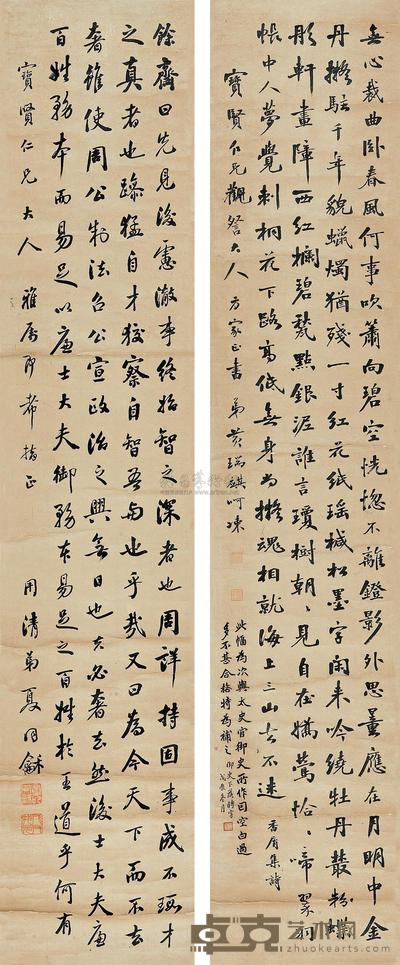 無心裁曲卧春風何事吹簫向碧空恍惚不離鐙影外思量應在月明中金
丹擬駐千年貌蠟燭猶殘一寸紅花紙瑤緘松墨字閑來吟繞牡丹叢粉蝶
彤軒畫障西紅欄碧甃點銀泥誰言瓊樹朝朝見自在嬌鶯恰恰啼翠羽
帳中人夢覺刺桐花下路高低無身尚擬魂相就海上三山去不迷 香屑集詩
寶賢仁兄觀詧大人方家正書 弟黃瑞麒呵凍
此幅為次與太史官御史所作因空白過
多不甚合格特為補之
餘齋曰先見後慮澈事終始智之深者也周詳持固事成不殛才
之真者也躁猛自才狡察自智吾与也乎哉又曰為今天下而不去
奢雖使周公制法召公宣政治之興無日也夫必奢去然後士大夫廉
百姓務本而易足以廉士大夫御務本易足之百姓於王道乎何有
寶賢仁兄大人雅屬即希指正
用清弟夏同龢
卓克藝術網
www.zhuokearts.com